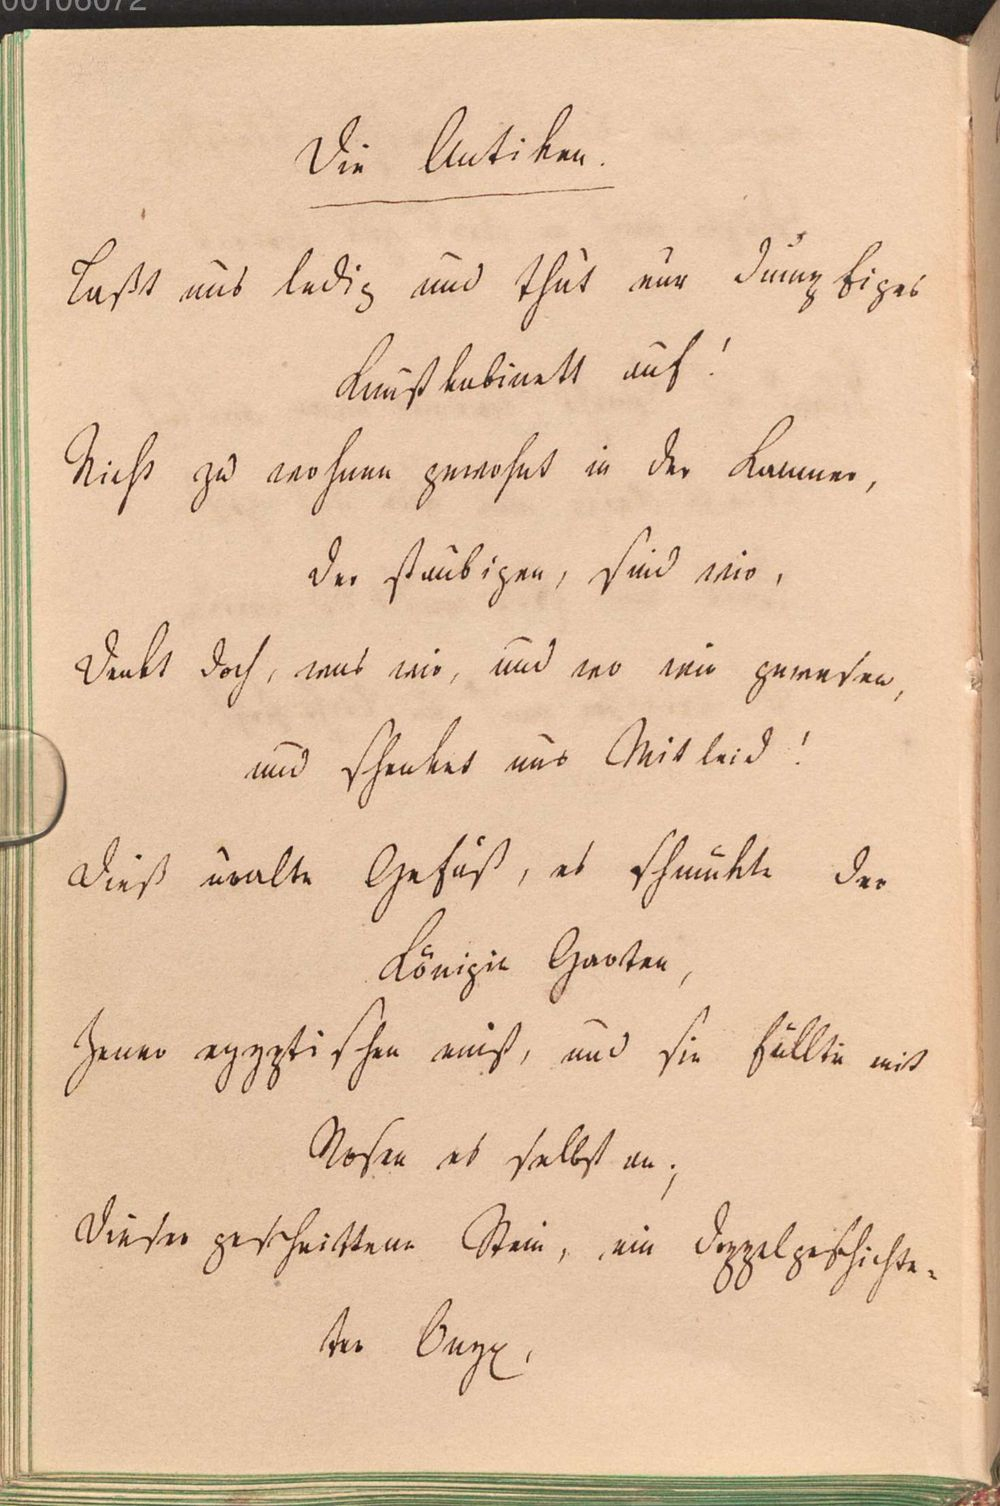 00106072
Die Antiken.
Laßt uns ledig und thut eur dumpfiges
Kunstkabinett auf!
Nicht zu wohnen gewohnt in der Kammer,
der staubigen, sind wir,
Denkt doch, was wir, und wo wir gewesen,
und schenket uns Mitleid!
Dieß uralte Gefäß, es schmükte der
Königin Garten,
Jener egyptischen einst, und sie füllte mit
Rosen es selbst an;
Dieser geschnittene Stein, ein doppelgeschichte-
ter Onyx,